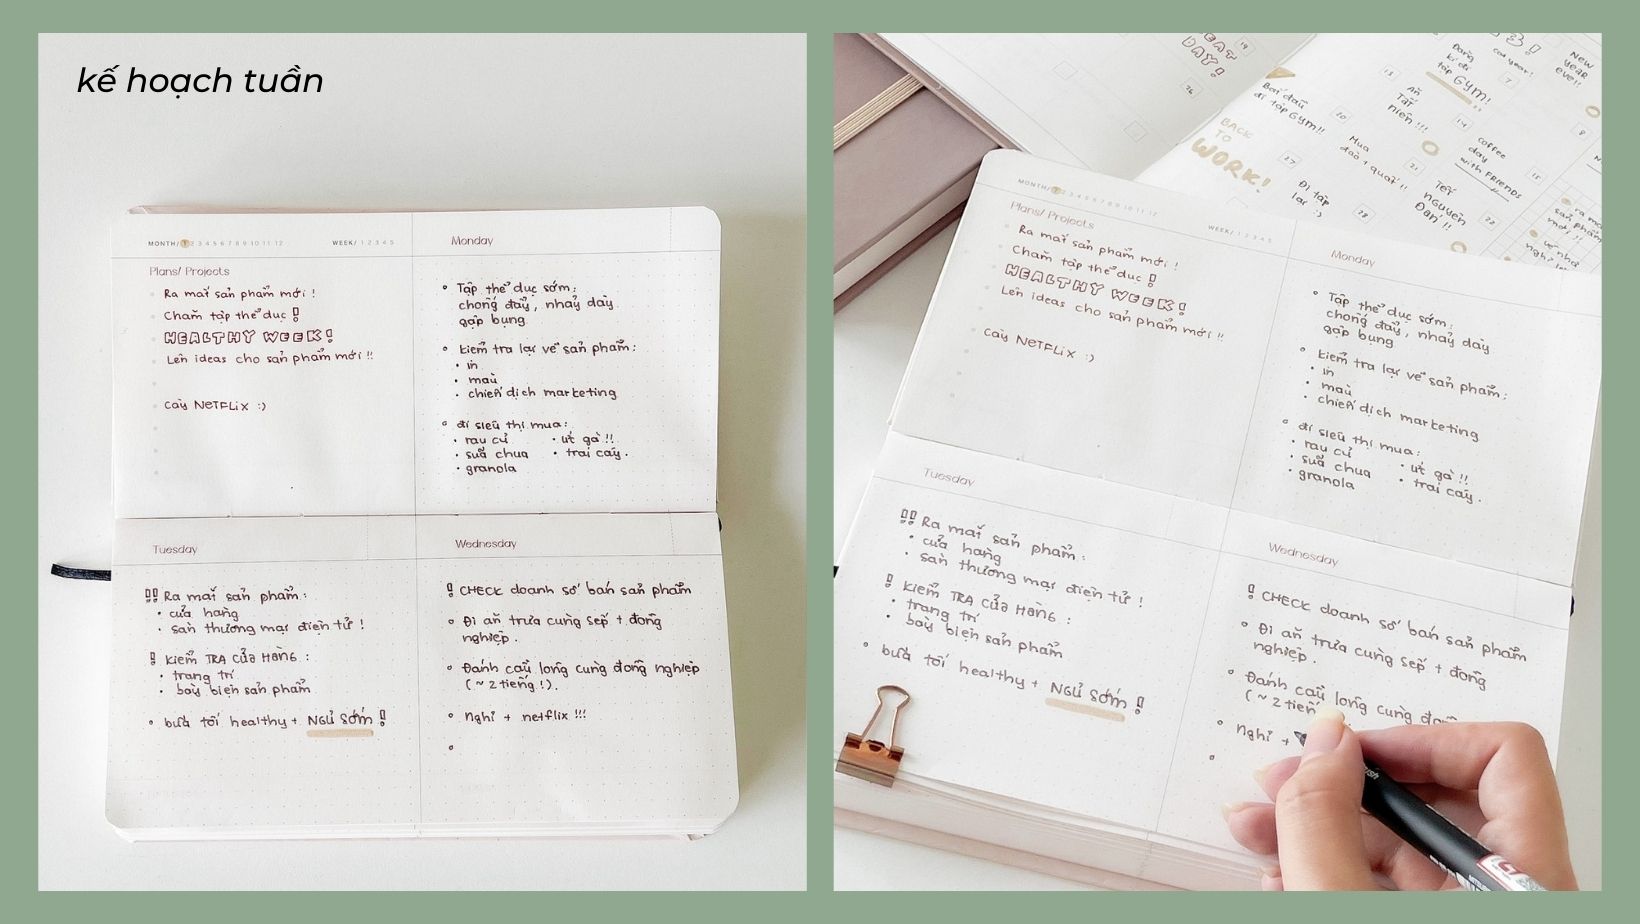 kế hoạch tuần
MONTH/ 1 2 3 4 5 6 7 8 9 10 11 12
WEEK/ 1 2 3 4 5
Plans/ Projects
Ra mắt sản phẩm mới !
Chăm tập thể dục !
HEALTHY WEEK!
Lên ideas cho sản phẩm mới !!
cày NETFLIX :)
Monday
Tập thể dục sớm:
chống đẩy, nhảy dây
gập bụng
kiểm tra lại về sản phẩm:
in
màu
chiến dịch marketing
đi siêu thị mua:
rau củ
ức gà !!
sữa chua
trái cây.
granola
Tuesday
!! Ra mắt sản phẩm:
cửa hàng
sàn thương mại điện tử !
! KIỂM TRA CỬA HÀNG :
trang trí
bày biện sản phẩm
bữa tối healthy + NGỦ SỚM !
Wednesday
! CHECK doanh số bán sản phẩm
Đi ăn trưa cùng sếp + đồng
nghiệp.
Đánh cầu lông cùng đồng nghiệp
(~ 2 tiếng !).
nghỉ + netflix !!!
EAT
DAY!
19
26
Đăng
kí đi
tập Gym!
NEW
YEAR
EVE!!
7
13
Bắt đầu
đi tập Gym!!
Ăn
Tất
niên !!!
14
8
20
BACK
TO
WORK!
Mua
đào + quất !!
coffee
day
with FRIENDS
15
27
21
Đi tập
lại :)
TẾT
NGUYÊN
ĐÁN !!
22
28
MONTH/ 1 2 3 4 5 6 7 8 9 10 11 12
WEEK/ 1 2 3 4 5
Plans/ Projects
Ra mắt sản phẩm mới !
Chăm tập thể dục !
HEALTHY WEEK!
Lên ideas cho sản phẩm mới !!
cày NETFLIX :)
Monday
Tập thể dục sớm:
chống đẩy, nhảy dây
gập bụng
kiểm tra lại về sản phẩm:
in
màu
chiến dịch marketing
đi siêu thị mua:
rau củ
ức gà !!
sữa chua
trái cây.
granola
Tuesday
!! Ra mắt sản phẩm:
cửa hàng
sàn thương mại điện tử !
! KIỂM TRA CỬA HÀNG :
trang trí
bày biện sản phẩm
bữa tối healthy + NGỦ SỚM !
Wednesday
! CHECK doanh số bán sản phẩm
Đi ăn trưa cùng sếp + đồng
nghiệp.
Đánh cầu lông cùng
(~ 2
nghỉ +